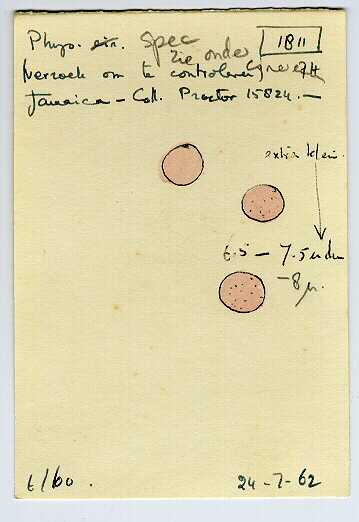 Phys. cin. Spec 1811
zie onder
Verzoek om te controleren
Jamaica - Coll. Proctor 15824. -
extra klein.
6.5 - 7.5 u dm
- 8 µ.
t/60. 24-7-62